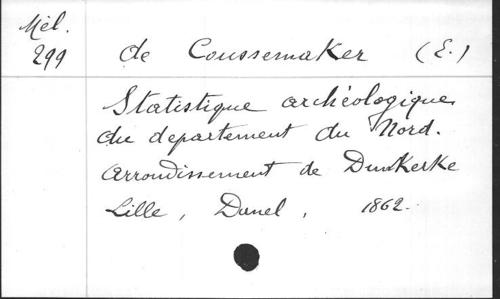 Mél.
299
de Coussemaker (E.)
Statistique archéologique
du departement du Nord.
Arrondissement de Dunkerke
Lille, Danel, 1862.